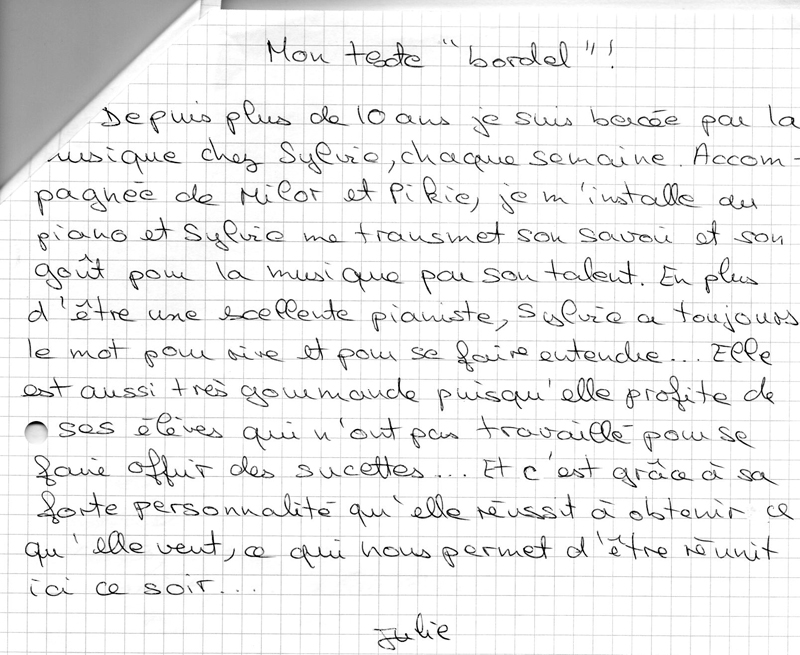 Mon texte "bordel"!
Depuis plus de 10 ans je suis bercée par la
musique chez Sylvie, chaque semaine. Accom-
pagnée de Milor et Pikie, je m'installe au
piano et Sylvie me transmet son savoir et son
goût pour la musique par son talent. En plus
d'être une excellente pianiste, Sylvie a toujours
le mot pour rire et pour se faire entendre... Elle
est aussi très gourmande puisqu'elle profite de
ses élèves qui n'ont pas travaillé pour se
faire offrir des sucettes... Et c'est grâce à sa
forte personnalité qu'elle réussit à obtenir ce
qu'elle veut, ce qui nous permet d'être réunit
ici ce soir...
Julie